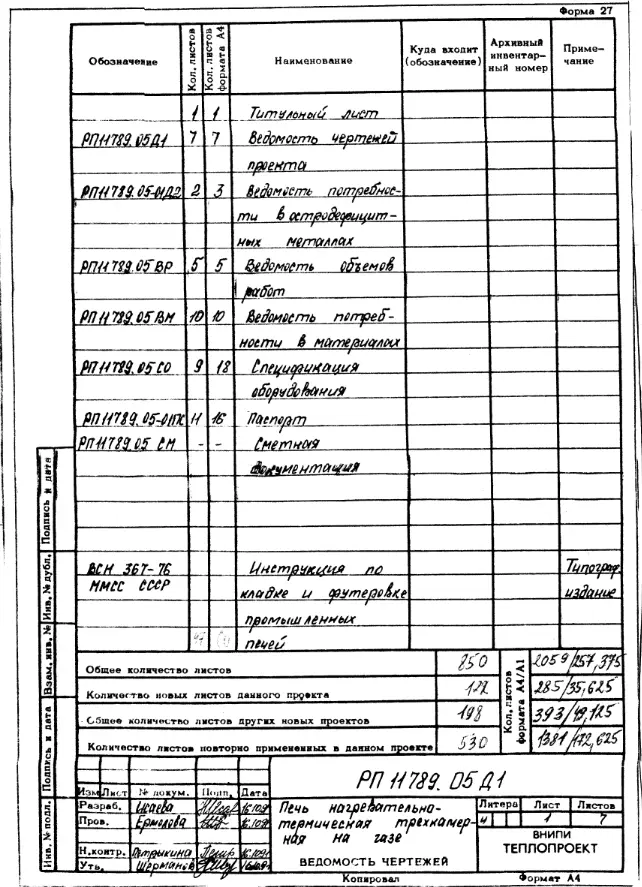 Форма 27
Обозначение Кол. листов Кол. листов формата А4 Наименование Куда входит (обозначение) Архивный инвентарный номер Примечание
1 1 Титульный лист
РП11789.05Д1 7 7 Ведомость чертежей
проекта
РП11789.05-01Д2 2 3 Ведомость потребнос-
ти в остродефицит-
ных металлах
РП11789.05ВР 5 5 Ведомость объемов
работ
РП11789.05ВМ 10 10 Ведомость потреб-
ности в материалах
РП11789.05СО 9 18 Спецификация
оборудования
РП11789.05-01ПС 11 16 Паспорт
РП11789.05 СМ - - Сметная
документация
ВСН 367-76 Инструкция по Типограф.
ММСС СССР кладке и футеровке издание
промышленных
печей
Общее количество листов 850 2059/257,375
Количество новых листов данного проекта 122 285/35,625
Общее количество листов других новых проектов 198 393/49,125
Количество листов повторно примененных в данном проекте 530 1381/172,625
Кол. листов формата А4/А1
Подпись и дата
Инв. № дубл.
Взам. инв. №
Подпись и дата
Инв. № подл.
РП 11789. 05 Д1
Изм Лист № докум. Подп. Дата
Разраб. Исаева
Пров. Ермолова
Н.контр. Петрыкина
Утв. Шерманов
Печь нагревательно-
термическая трехкамер-
ная на газе
ВЕДОМОСТЬ ЧЕРТЕЖЕЙ
Литера Лист Листов
Ч 1 7
ВНИПИ
ТЕПЛОПРОЕКТ
Копировал Формат А4